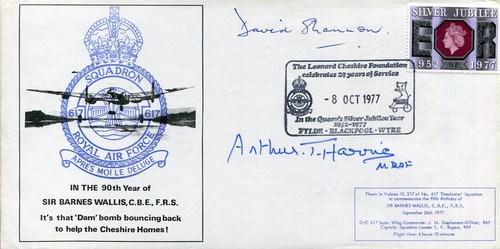 David Shannon
SILVER JUBILEE
ER
1952 1977
SQUADRON
617 617
ROYAL AIR FORCE
APRES MOI LE DELUGE
The Leonard Cheshire Foundation
celebrates 29 years of Service
- 8 OCT 1977
In the Queen's Silver Jubilee Year
1952-1977
FYLDE · BLACKPOOL · WYRE
Arthur T. Harris
MRAF
IN THE 90th Year of
SIR BARNES WALLIS, C.B.E., F.R.S.
It's that 'Dam' bomb bouncing back
to help the Cheshire Homes!
Flown in Vulcan XL 317 of No. 617 'Dambuster' Squadron
to commemorate the 90th Birthday of
SIR BARNES WALLIS, C.B.E., F.R.S.
September 26th 1977
O/C 617 Sqdn: Wing Commander J. N. Stephenson-Oliver, RAF
Captain: Squadron Leader E. V. Bogers, RAF
Flight time: 4 hours 10 minutes